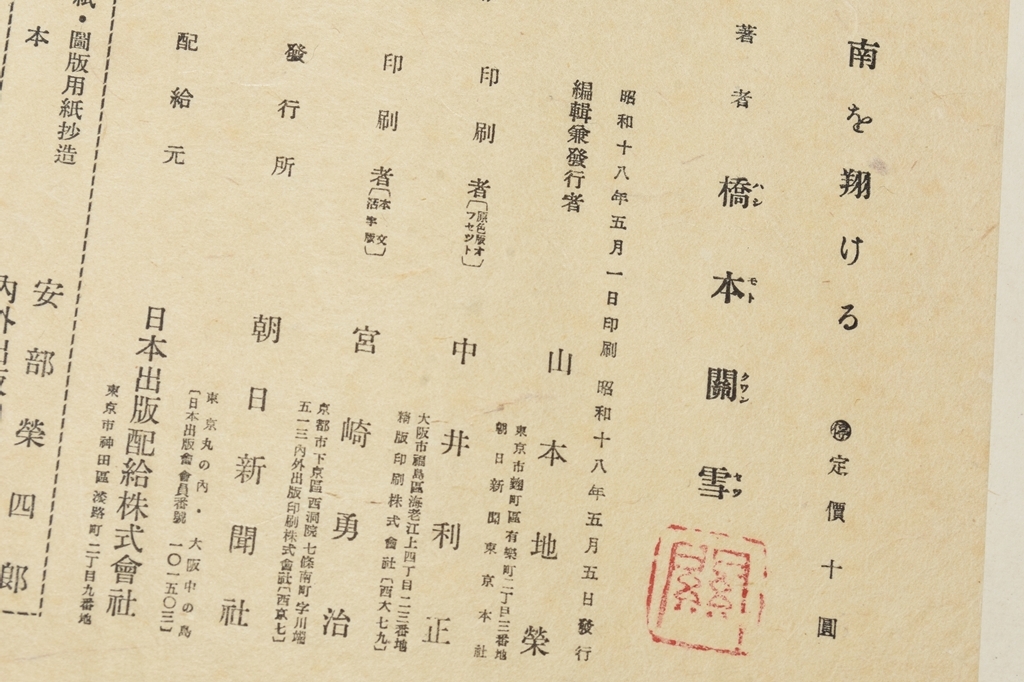 南を翔ける
停定價十圓
著者 橋本關雪
ハシモトクワンセツ
昭和十八年五月一日印刷 昭和十八年五月五日發行
編輯兼發行者 山本地榮
東京市麴町區有樂町二丁目三番地
朝日新聞東京本社
印刷者〔原色版オフセツト〕 中井利正
大阪市福島區海老江上四丁目二三番地
精版印刷株式會社〔西大七九〕
印刷者〔本文活字版〕 宮崎勇治
京都市下京區西洞院七條南町字川端
五一三內外出版印刷株式會社〔西京七〕
發行所 朝日新聞社
東京丸の內・大阪中の島
〔日本出版會會員番號 一〇一五〇三〕
配給元 日本出版配給株式會社
東京市神田區淡路町二丁目九番地
紙・圖版用紙抄造 安部榮四郎
本 內外出版